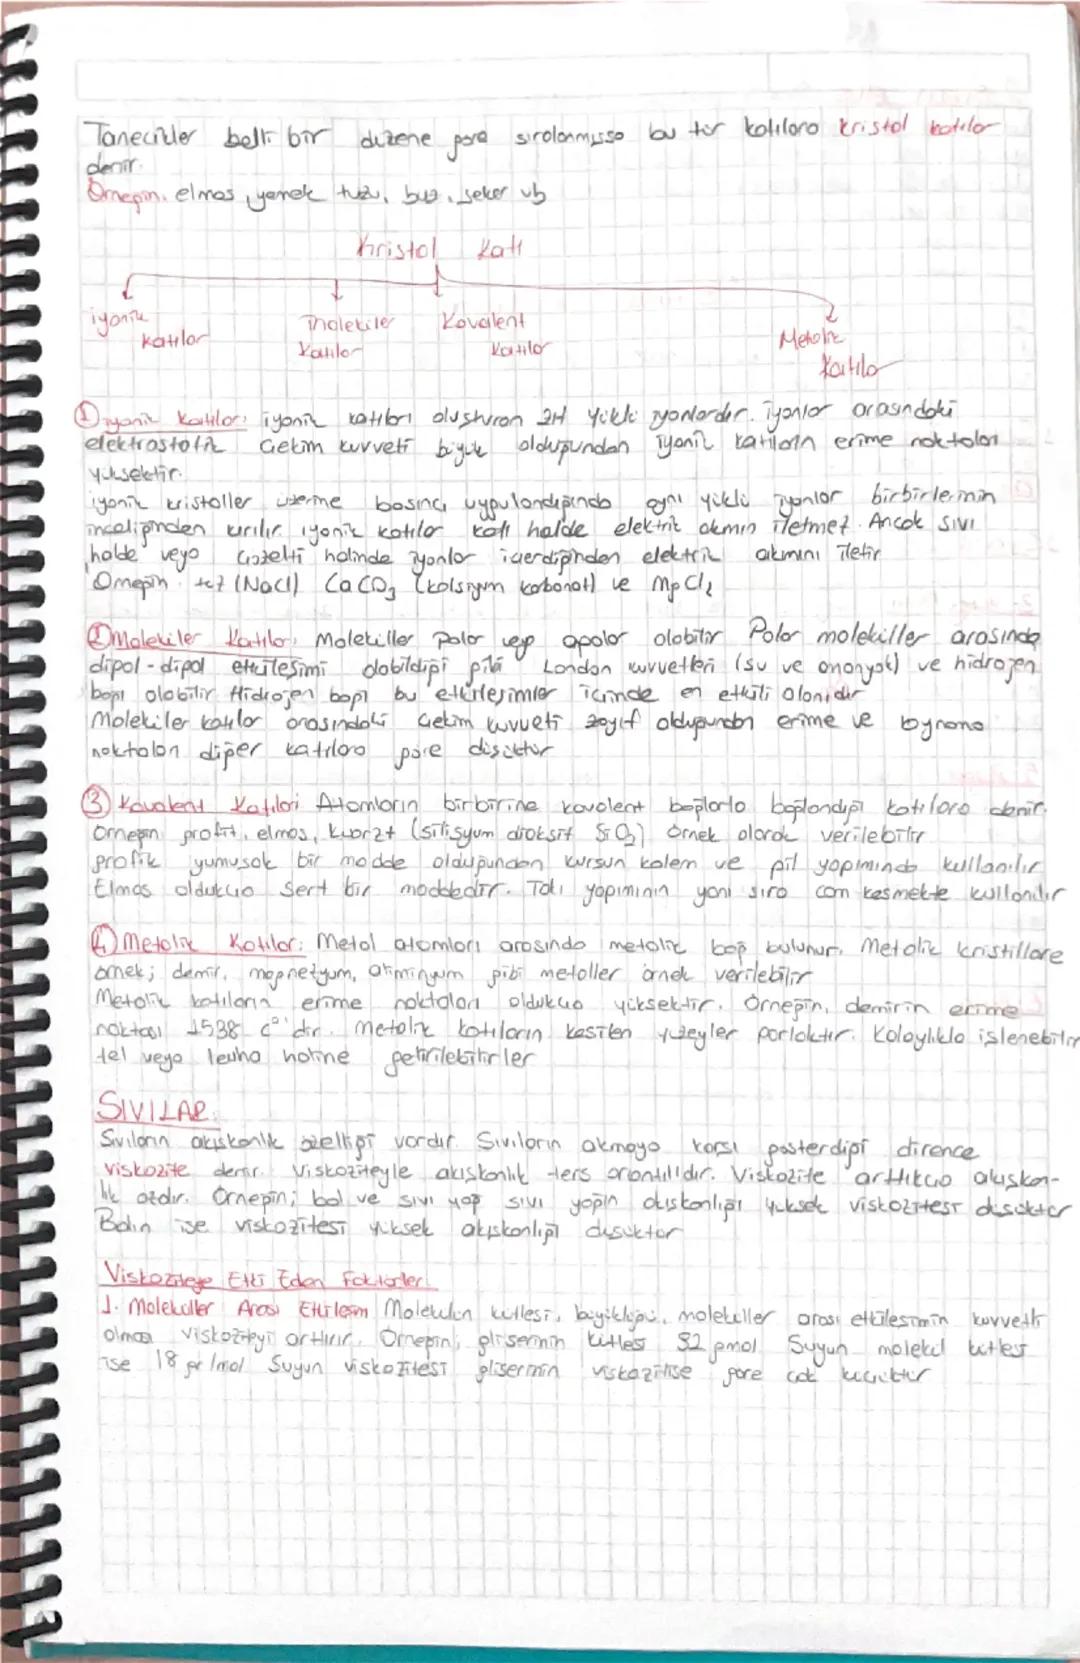 Tanecikler belli bir düzene göre sıralanmışsa bu tür katılara kristal katılar
denir.
Örneğin, elmas, yemek tuzu, buz, şeker vb
Kristal Katı
iyonik Moleküler Kovalent Metalik
katılar Katılar Katılar Katılar
① iyonik Katılar: iyonik katıları oluşturan zıt yüklü iyonlardır. iyonlar arasındaki
elektrostatik Çekim kuvveti büyük olduğundan iyonik katıların erime noktaları
yüksektir.
iyonik kristaller üzerine basınç uygulandığında aynı yüklü iyonlar birbirlerinin
kırılır. iyonik katılar katı halde elektrik akımını iletmez. Ancak sıvı
halde veya Çözelti halinde iyonlar içerdiğinden elektrik akımını iletir
Örneğin tuz (NaCl) CaCO₃ (kalsiyum karbonat) ve MgCl₂
② Moleküler Katılar: Moleküller polar veya apolar olabilir Polar moleküller arasında
dipol-dipol etkileşimi olabildiği gibi London kuvvetleri (su ve amonyak) ve hidrojen
bağı olabilir Hidrojen bağı bu etkileşimler içinde en etkili olanıdır
Moleküler katılar arasındaki Çekim kuvveti zayıf olduğundan erime ve kaynama
noktaları diğer katılara göre düşüktür
③ Kovalent Katılar: Atomların birbirine kovalent bağlarla bağlandığı katılara denir.
Örneğin grafit, elmas, kuarzt (silisyum dioksit SiO₂) örnek olarak verilebilir
grafik yumuşak bir madde olduğundan kurşun kalem ve pil yapımında kullanılır
Elmas oldukça sert bir maddedir. Takı yapımının yanı sıra cam kesmekte kullanılır
④ Metalik Katılar: Metal atomları arasında metalik bağ bulunur. Metalik kristallere
örnek; demir, magnezyum, alüminyum gibi metaller örnek verilebilir
Metalik katıların erime noktaları oldukça yüksektir. Örneğin, demirin erime
noktası 1538 c°'dir. Metalik katıların kesilen yüzeyler parlaktır. Kolaylıkla işlenebilir
tel veya levha haline getirilebilirler
SIVILAR:
Sıvıların akışkanlık özelliği vardır. Sıvıların akmaya karşı gösterdiği dirence
viskozite denir. Viskoziteyle akışkanlık ters orantılıdır. Viskozite arttıkça akışkan-
lık azdır. Örneğin; bal ve sıvı yağ sıvı yağın akışkanlığı yüksek viskozitesi düşüktür
Balın ise viskozitesi yüksek akışkanlığı düşüktür
Viskoziteye Etki Eden Faktörler:
1. Moleküller Arası Etkileşim Molekülün kütlesi, büyüklüğü, moleküller arası etkileşimin kuvvetli
olması viskoziteyi arttırır. Örneğin; gliserinin kütlesi 92 gmol Suyun molekül kütlesi
ise 18 gr/mol Suyun viskozitesi gliserinin viskozitise göre çok küçüktür